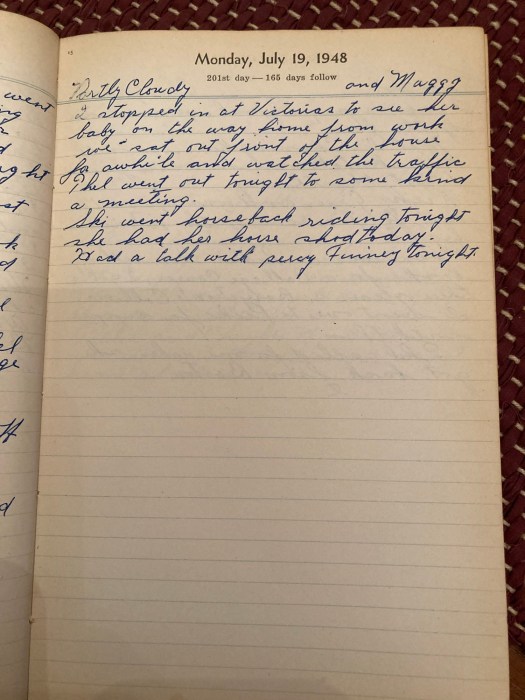 Monday, July 19, 1948
201st day — 165 days follow
Partly Cloudy and Muggy
I stopped in at Victorias to see her
baby on the way home from work
we sat out front of the house
for awhile and watched the traffic
Phel went out tonight to some kind
a meeting.
Ski went horseback riding tonight
she had her horse shod today.
Had a talk with percy Finney tonight.
went
ng
d
ght
st
k
d
l
el
ge
ff
d